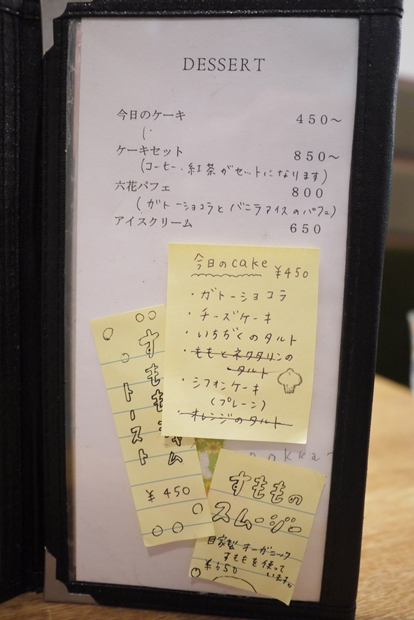 DESSERT
今日のケーキ 450～
(
ケーキセット 850～
(コーヒー・紅茶がセットになります)
六花パフェ 800
(ガトーショコラとバニラアイスのパフェ)
アイスクリーム 650
今日のcake ¥450
・ガトーショコラ
・チーズケーキ
・いちぢくのタルト
・ももとネクタリンの
タルト
・シフォンケーキ
(プレーン)
・オレンジのタルト
すもも
ム
トースト
¥450
すももの
スムージー
自家製オーガニック
すももを使って
います。